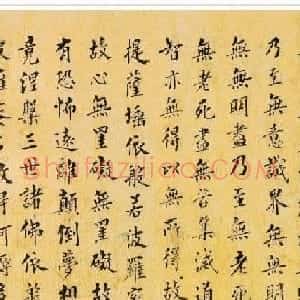 乃至無意識界無無明
無無明盡乃至無老死
無老死盡無苦集滅道
智亦無得以無所得故
提薩埵依般若波羅蜜
故心無罣礙無罣礙故
有恐怖遠離顛倒夢想
竟涅槃三世諸佛依般